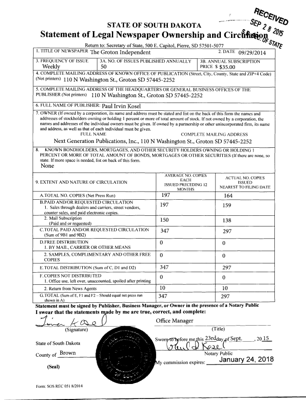 RECEIVED
SEP 28 2015
STATE OF SOUTH DAKOTA
Statement of Legal Newspaper Ownership and Circulation
Return to: Secretary of State, 500 E. Capitol, Pierre, SD 57501-5077
1. TITLE OF NEWSPAPER The Groton Independent
2. DATE 09/29/2014
3. FREQUENCY OF ISSUE
Weekly
3A. NO. OF ISSUES PUBLISHED ANNUALLY
50
3B. ANNUAL SUBSCRIPTION
PRICE $ $35.00
4. COMPLETE MAILING ADDRESS OF KNOWN OFFICE OF PUBLICATION (Street, City, County, State and ZIP+4 Code)
(Not printers) 110 N Washington St., Groton SD 57445-2252
5. COMPLETE MAILING ADDRESS OF THE HEADQUARTERS OR GENERAL BUSINESS OFFICES OF THE
PUBLISHER (Not printer) 110 N Washington St., Groton SD 57445-2252
6. FULL NAME OF PUBLISHER: Paul Irvin Kosel
7. OWNER (If owned by a corporation, its name and address must be stated and also immediately thereunder the names and
addresses of stockholders owning or holding 1 percent or more of total amount of stock. If not owned by a corporation, the
names and addresses of the individual owners must be given. If owned by a partnership or other unincorporated firm, its name
and address, as well as that of each individual must be given.
FULL NAME
COMPLETE MAILING ADDRESS
Next Generation Publications, Inc., 110 N Washington St., Groton SD 57445-2252
8. KNOWN BONDHOLDERS, MORTGAGEES, AND OTHER SECURITY HOLDERS OWNING OR HOLDING 1
PERCENT OR MORE OF TOTAL AMOUNT OF BONDS, MORTGAGES OR OTHER SECURITIES (If there are none, so
state. If more space is needed, list on back of this form.
None
9. EXTENT AND NATURE OF CIRCULATION
AVERAGE NO. COPIES
EACH
ISSUED PRECEDING 12
MONTHS
ACTUAL NO. COPIES
ISSUED
NEAREST TO FILING DATE
A. TOTAL NO. COPIES (Net Press Run) 197 164
B. PAID AND/OR REQUESTED CIRCULATION
1. Sales through dealers and carriers, street vendors,
counter sales, and paid electronic copies. 197 159
2. Mail Subscription
(Paid and/or requested) 150 138
C. TOTAL PAID AND/OR REQUESTED CIRCULATION
(Sum of 9B1 and 9B2) 347 297
D. FREE DISTRIBUTION
1. BY MAIL, CARRIER OR OTHER MEANS 0 0
2. SAMPLES, COMPLIMENTARY AND OTHER FREE
COPIES 0 0
E. TOTAL DISTRIBUTION (Sum of C, D1 and D2) 347 297
F. COPIES NOT DISTRIBUTED
1. Office use, left over, unaccounted, spoiled after printing 0 0
2. Return from News Agents 10 10
G. TOTAL (Sum of E, F1 and F2 - Should equal net press run
shown in A) 347 297
Statement must be signed by Publisher, Business Manager, or Owner in the presence of a Notary Public
I swear that the statements made by me are true, correct, and complete:
Tina Kosel
Office Manager
(Signature)
(Title)
State of South Dakota
Sworn to before me this 23rd day of Sept. , 2015
Paul I Kosel
County of Brown
Notary Public
(Seal)
My commission expires: January 24, 2018
Form: SOS REC 051 8/2014